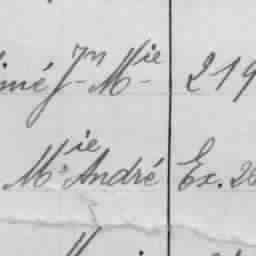 imé Jn Mie 219
Mie André Ex. 28